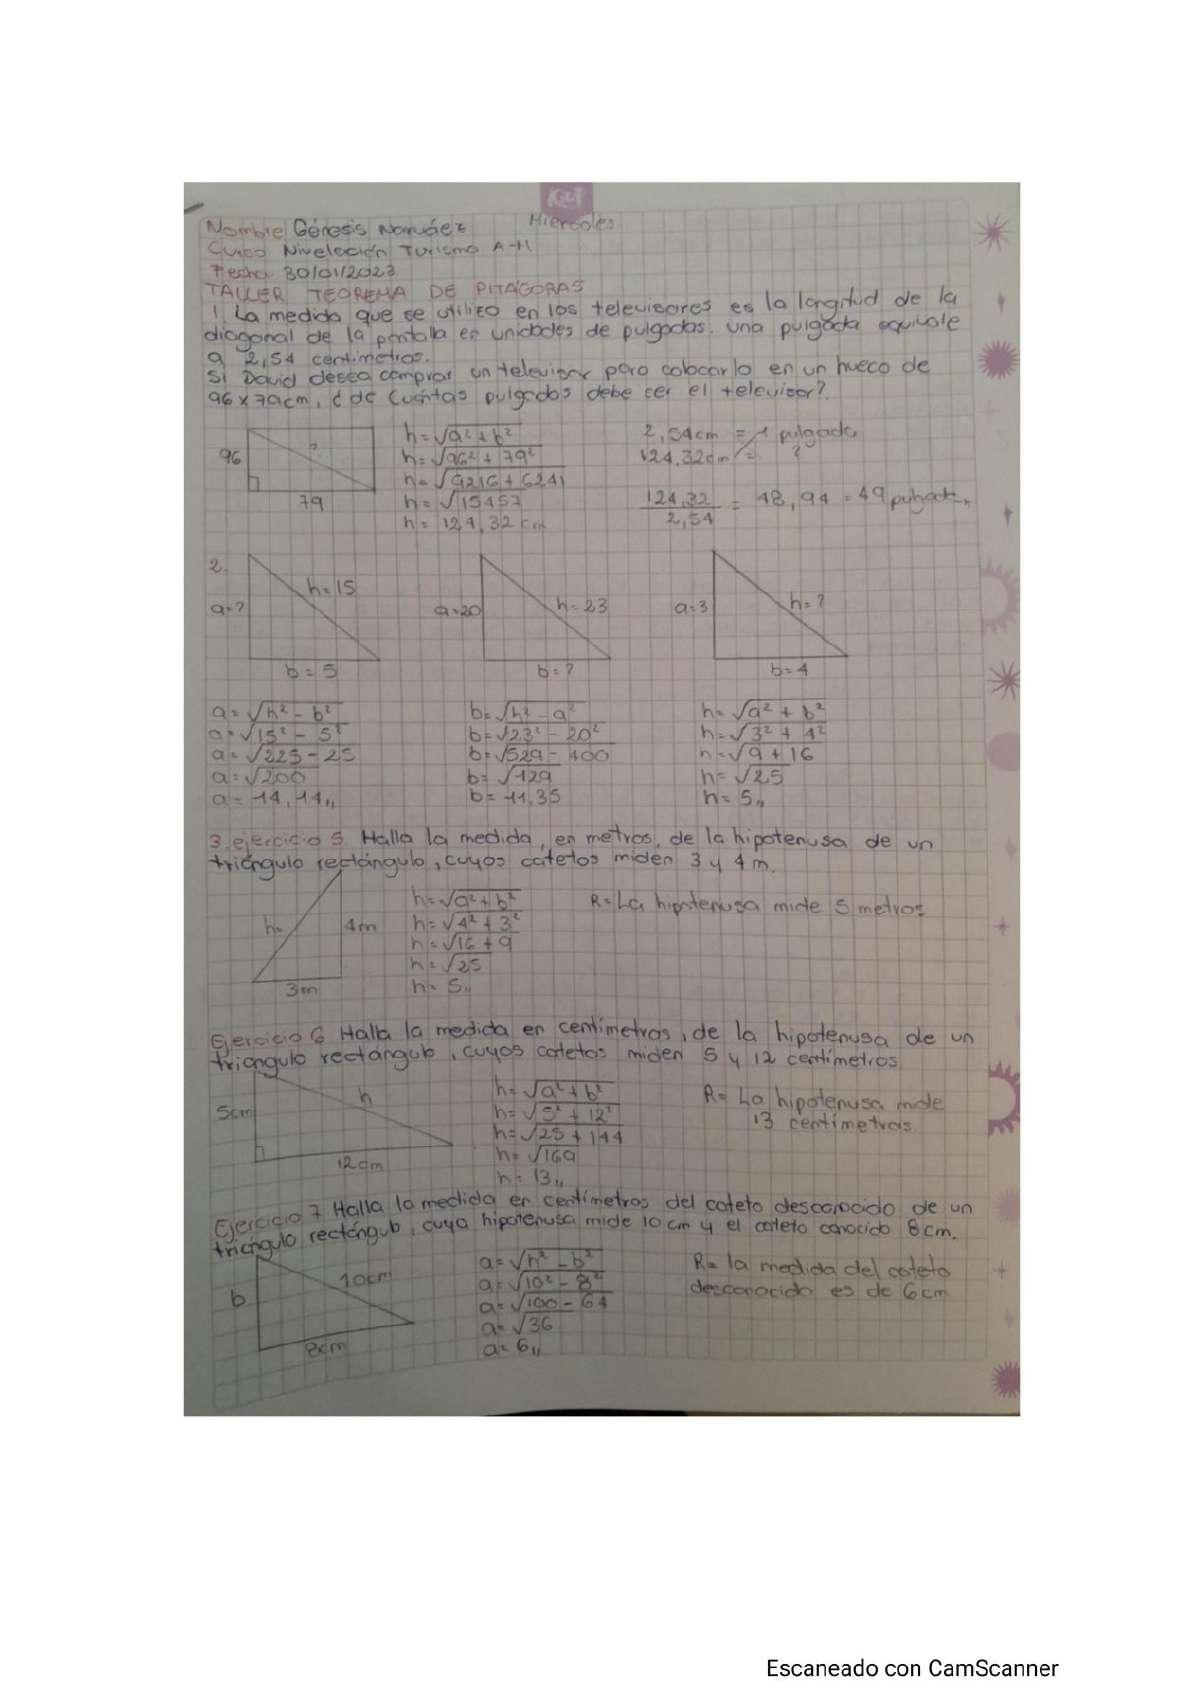 Kiut
Miercoles
Nombre Génesis Narváez
Curso Nivelación Turismo A-11
Fecha 30/01/2023
TALLER TEOREMA DE PITAGORAS
1. La medida que se utiliza en los televisores es la longitud de la
diagonal de la pantalla en unidades de pulgadas. una pulgada equivale
a 2,54 centimetros.
Si David desea comprar un televisor para colocarlo en un hueco de
96 x 79cm, ¿de cuantas pulgadas debe ser el televisor?
96 ? 79
h = √a² + b²
h = √96² + 79²
h = √9216 + 6241
h = √15457
h = 124,32 cm
2,54cm = 1 pulgada
124,32cm = ?
124,32 / 2,54 = 48,94 = 49 pulgadas
2.
a=? h=15 b=5
a=20 h=23 b=?
a=3 h=? b=4
a = √h² - b²
a = √15² - 5²
a = √225 - 25
a = √200
a = 14,14,,
b = √h² - a²
b = √23² - 20²
b = √529 - 400
b = √129
b = 11,35
h = √a² + b²
h = √3² + 4²
h = √9 + 16
h = √25
h = 5,,
3. ejercicio 5. Halla la medida, en metros, de la hipotenusa de un
triángulo rectángulo, cuyos catetos miden 3 y 4 m.
h= 4m 3m
h = √a² + b²
h = √4² + 3²
h = √16 + 9
h = √25
h = 5,,
R = La hipotenusa mide 5 metros
Ejercicio 6 Halla la medida en centímetros, de la hipotenusa de un
triangulo rectángulo, cuyos catetos miden 5 y 12 centímetros
5cm h 12cm
h = √a² + b²
h = √5² + 12²
h = √25 + 144
h = √169
h = 13,,
R = La hipotenusa mide
13 centimetros
Ejercicio 7 Halla la medida en centímetros del cateto desconocido de un
triangulo rectángulo, cuya hipotenusa mide 10 cm y el cateto conocido 8 cm.
b 10cm 8cm
a = √h² - b²
a = √10² - 8²
a = √100 - 64
a = √36
a = 6,,
R = la medida del cateto
desconocido es de 6cm
Escaneado con CamScanner